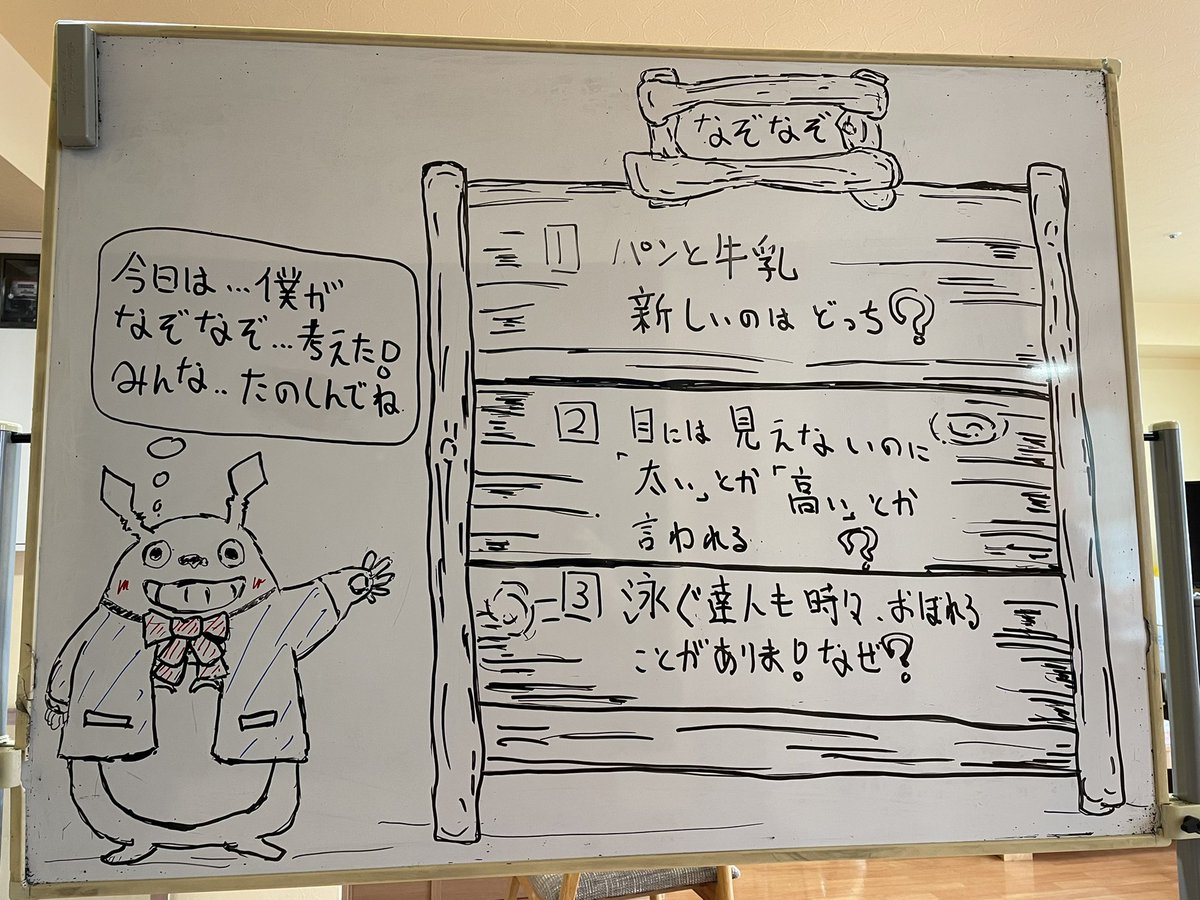 なぞなぞ
今日は…僕が
なぞなぞ…考えた!
みんな‥たのしんでね
1 パンと牛乳
新しいのはどっち?
2 目には見えないのに
「太い」とか「高い」とか
言われる?
3 泳ぐ達人も時々、おぼれる
ことがありま!なぜ?